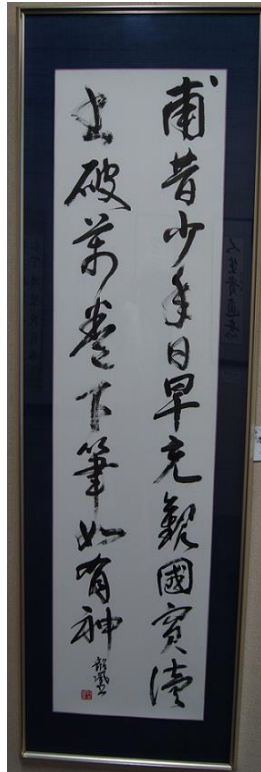 甫昔少年日早充觀國賓讀
書破萬卷下筆如有神